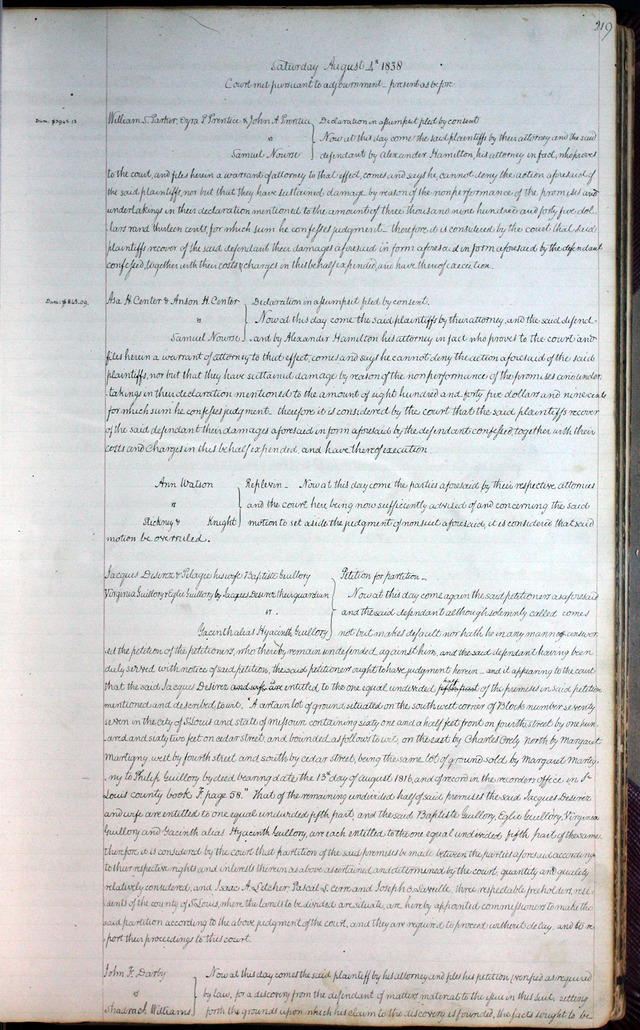 219
Saturday August 4th 1838
Court met pursuant to adjournment present as before
Dam. $3945.13
William S. Parker, Ezra P Prentice & John A Prentice
vs
Samuel Nowse
Declaration in assumpsit filed by consent
Now at this day come the said plaintiffs by their attorney and the said
defendant by Alexander Hamilton, his attorney in fact, who proves
to the court, and files herein a warrant of attorney to that effect, comes and says he cannot deny the action aforesaid of
the said plaintiffs, nor but that they have sustained damage by reason of the nonperformance of the promises and
undertakings in their declaration mentioned to the amount of three thousand nine hundred and forty five dol
lars and thirteen cents, for which sum he confesses judgment — therefore it is considered by the court that said
plaintiffs recover of the said defendant their damages aforesaid in form aforesaid in form aforesaid by the defendant
confessed, together with their costs & charges in this behalf expended, and have thereof execution.
Dam. $845.09
Asa H Center & Anson H. Center
vs
Samuel Nowse
Declaration in assumpsit filed by consent.
Now at this day come the said plaintiffs by their attorney, and the said defend-
-and by Alexander Hamilton his attorney in fact who proves to the court and
files herein a warrant of attorney to that effect, comes and says he cannot deny the action aforesaid of the said
plaintiffs, nor but that they have sustained damage by reason of the non performance of the promises and under-
-takings in their declaration mentioned to the amount of eight hundred and forty five dollars and nine cents
for which sum he confess judgment. therefore it is considered by the court that the said plaintiffs recover
of the said defendant their damages aforesaid in form aforesaid by the defendant confessed, together with their
costs and Charges in this behalf expended, and have thereof execution
Ann Watson
vs
Rickney & Knight
Replevin — Now at this day come the parties aforesaid by their respective attornies
and the court here being now sufficiently advised of and concerning the said
motion to set aside the judgment of nonsuit aforesaid, it is considered that said
motion be overruled.
Jacques Desirez & Pelagie his wife Baptiste Guillory
Virginia Guillory & Eglie Guillory by Jacques Desirez their guardian
vs.
Yacinth alias Hyacinth Guillory
Petition for partition —
Now at this day come again the said petitioners as aforesaid
and the said defendant although solemnly called comes
not but makes default nor hath he in any manner answer
ed the petition of the petitioners, who thereby remain undefended against him, and the said defendant having been
duly served with notice of said petition, the said petitioners ought to have judgment herein — and it appearing to the court
that the said Jacques Desirez and wife are entitled to the one equal undivided fifth part half of the premises in said petition
mentioned and described to wit: "A certain lot of ground situated on the southwest corner of Block number seventy
seven in the city of St Louis and state of missouri containing sixty one and a half feet front on fourth street by one hun
dred and sixty two feet on cedar street, and bounded as follows to wit, on the east by Charles Crely north by Margaut
Martigny, west by fourth street and south by cedar street, being the same lot of ground sold by Margaut Martig-
ny to Philip Guillory by deed bearing date the 13th day of august 1816, and of record in the recorders office in St
Louis county book F. page 58." That of the remaining undivided half of said premises the said Jacques Desirez
and wife are entitled to one equal undivided fifth part, and the said Baptiste Guillory, Eglie Guillory, Virginia
Guillory and Yacinth alias Hyacinth Guillory, are each entitled to the one equal undivided fifth part of the same
therefore it is considered by the court that partition of the said premises be made between the parties aforesaid according
to their respective rights and interests therein as above ascertained and determined by the court, quantity and quality
relatively considered, and Isaac A. Letcher Pascal S. Cerre and Joseph S. Laveille three respectable freeholders, resi
dents of the county of St Louis, where the lands to be divided are situate, are hereby appointed commissioners to make the
said partition according to the above judgment of the court, and they are required to proceed without delay, and to re
port their proceedings to this court.
John F. Darby
vs
Shadrach Williams
Now at this day comes the said plaintiff by his attorney and files his petition, verified as required
by law, for a discovery from the defendant of matters material to the issue in this suit, setting
forth the grounds upon which his claim to the discovery is founded, the facts sought to be